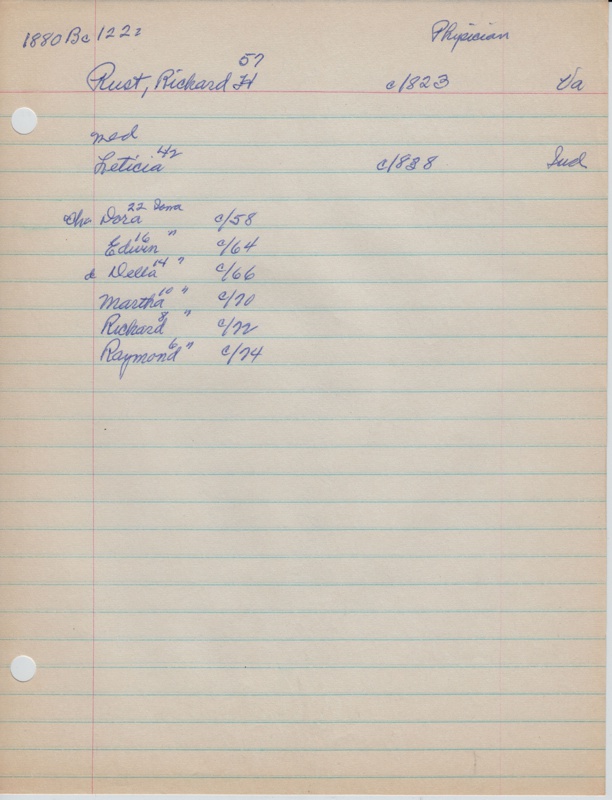 1880 Bc 1222 Physician
57
Rust, Richard H c/823 Va
med
Leticia 42 c/838 Ind
Ch Dora 22 Iowa c/58
Edwin 16 " c/64
& Della 14 " c/66
Martha 10 " c/70
Richard 8 " c/72
Raymond 6 " c/74